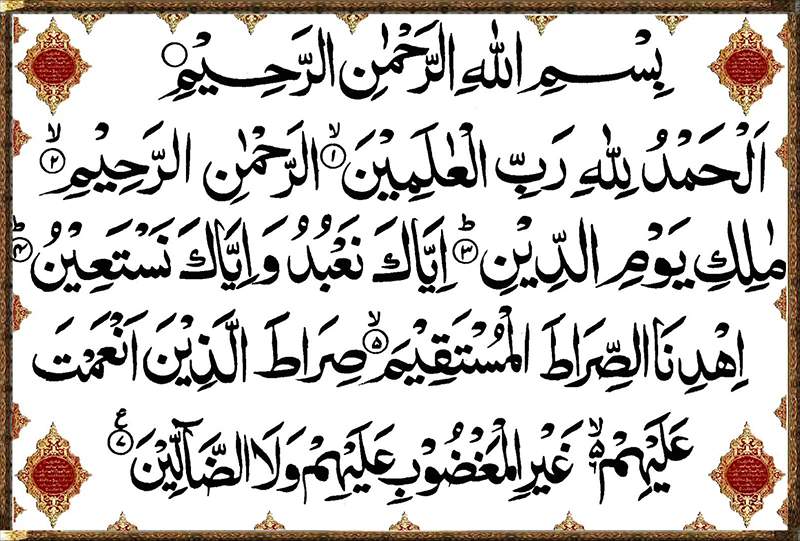 بِسْمِ اللهِ الرَّحْمٰنِ الرَّحِيْمِ
اَلْحَمْدُ لِلّٰهِ رَبِّ الْعٰلَمِيْنَ ۙ﴿۱﴾ الرَّحْمٰنِ الرَّحِيْمِ ۙ﴿۲﴾
مٰلِكِ يَوْمِ الدِّيْنِ ؕ﴿۳﴾ اِيَّاكَ نَعْبُدُ وَاِيَّاكَ نَسْتَعِيْنُ ؕ﴿۴﴾
اِهْدِنَا الصِّرَاطَ الْمُسْتَقِيْمَ ۙ﴿۵﴾ صِرَاطَ الَّذِيْنَ اَنْعَمْتَ
عَلَيْهِمْ ۙ۬ غَيْرِ الْمَغْضُوْبِ عَلَيْهِمْ وَلَا الضَّآلِّيْنَ ﴿۷﴾ ع